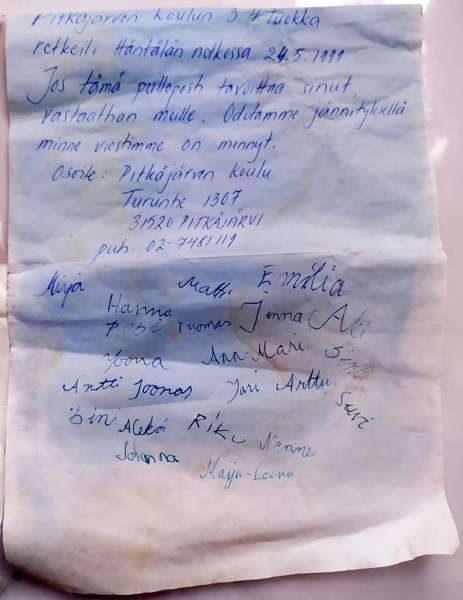 Pitkäjärven koulun 3.4 luokka
retkeili Häntälän notkossa 24.5.1999
Jos tämä pulloposti tavoittaa sinut,
vastaathan meille. Odotamme jännityksellä
minne viestimme on mennyt.
Osoite: Pitkäjärven koulu
Turuntie 1307
31520 PITKÄJÄRVI
puh. 02-7481119
Mirja Matti Emilia
Hanna Jenna Aki
Tuomas
Joona Ann Mari
Antti Joonas Jari Arttu Suvi
Aleksi Riku Nenne
Johanna Maiju-Leena